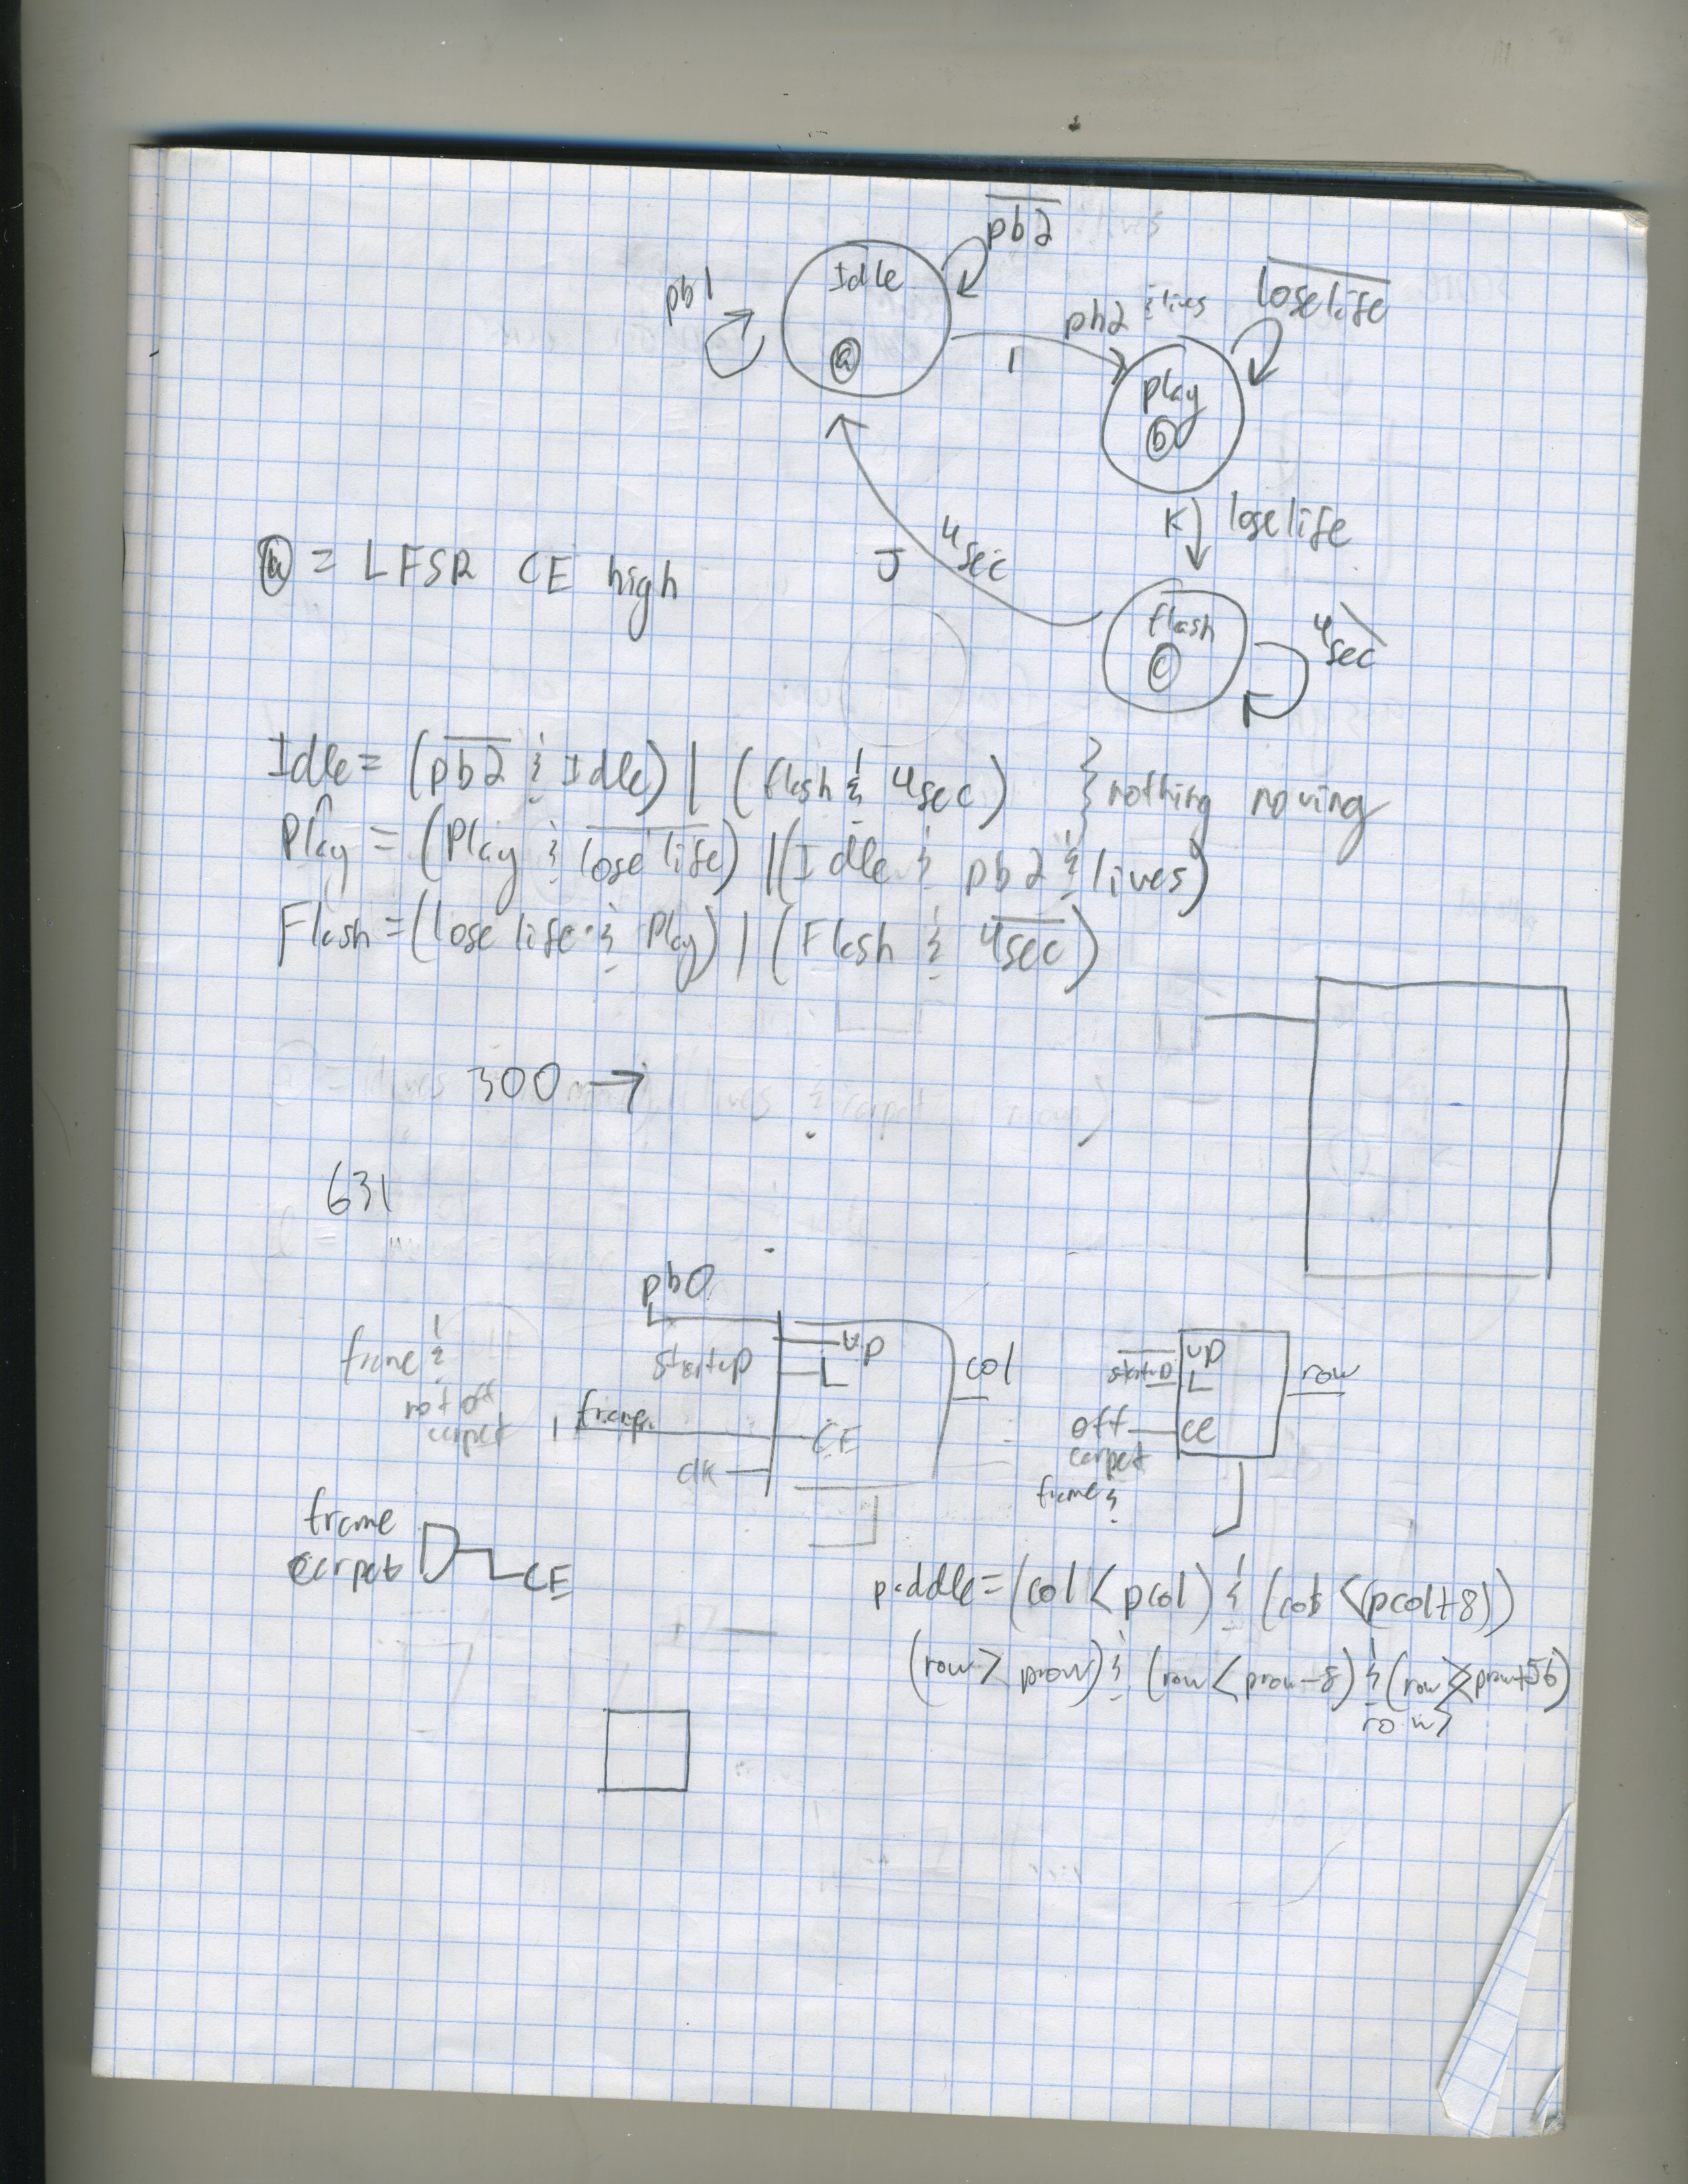 p̅b̅2̅
Idle
pb1
pb2 & lives
l̅o̅s̅e̅ ̅l̅i̅f̅e̅
I
ⓐ
play
ⓑ
K lose life
4sec
J
ⓐ = LFSR CE high
flash
ⓒ
4̅s̅e̅c̅
Idle = (p̅b̅2̅ & Idle) | (flash & 4sec) } nothing moving
Play = (Play & l̅o̅s̅e̅ ̅l̅i̅f̅e̅) | (Idle & pb2 & lives)
Flash = (lose life & Play) | (Flash & 4̅s̅e̅c̅)
300 →
631
pb0
frame &
not off
carpet
startup
UP
L
frame
CE
clk
col
s̅t̅a̅r̅t̅u̅p̅
UP
L
row
off
carpet
CE
frame &
frame
carpet
CE
paddle = (col < pcol) & (col < (pcol+8))
(row > prow) & (row < prow-8) & (row prow+56)
row >